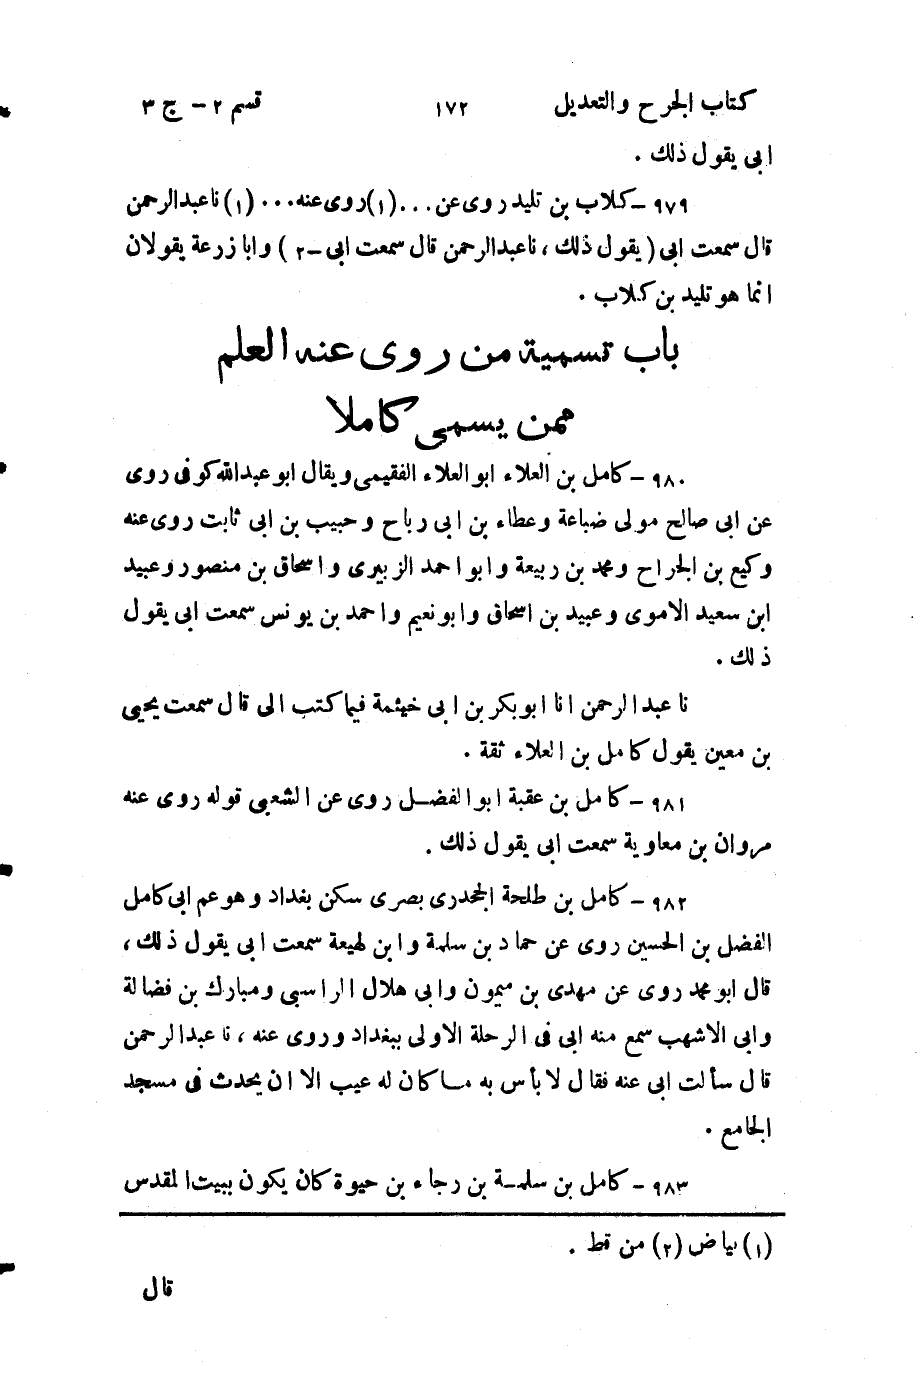 كتاب الجرح والتعديل ١٧٢ قسم ٢ - ج ٣
ابى يقول ذلك .
٩٧٩ - كلاب بن تليد روى عن ... (١) روى عنه ... (١) نا عبد الرحمن
قال سمعت ابى ( يقول ذلك ، نا عبد الرحمن قال سمعت ابى - ٢ ) وابا زرعة يقولان
انما هو تليد بن كلاب .
باب تسمية من روى عنه العلم
ممن يسمى كاملا
٩٨٠ - كامل بن العلاء ابو العلاء الفقيمى ويقال ابو عبد الله كوفى روى
عن ابى صالح مولى ضباعة وعطاء بن ابى رباح وحبيب بن ابى ثابت روى عنه
وكيع بن الجراح ومحمد بن ربيعة وابو احمد الزبيرى واسحاق بن منصور وعبيد
ابن سعيد الاموى وعبيد بن اسحاق وابو نعيم واحمد بن يونس سمعت ابى يقول
ذلك .
نا عبد الرحمن انا ابو بكر بن ابى خيثمة فيما كتب الى قال سمعت يحيى
بن معين يقول كامل بن العلاء ثقة .
٩٨١ - كامل بن عقبة ابو الفضل روى عن الشعبى قوله روى عنه
مروان بن معاوية سمعت ابى يقول ذلك .
٩٨٢ - كامل بن طلحة الجحدرى بصرى سكن بغداد وهو عم ابى كامل
الفضل بن الحسين روى عن حماد بن سلمة وابن لهيعة سمعت ابى يقول ذلك ،
قال ابو محمد روى عن مهدى بن ميمون وابى هلال الراسبى ومبارك بن فضالة
وابى الاشهب سمع منه ابى فى الرحلة الاولى ببغداد وروى عنه ، نا عبد الرحمن
قال سألت ابى عنه فقال لا بأس به ما كان له عيب الا ان يحدث فى مسجد
الجامع .
٩٨٣ - كامل بن سلمة بن رجاء بن حيوة كان يكون ببيت المقدس
(١) بياض (٢) من قط .
قال